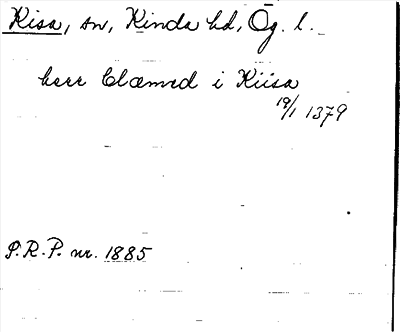 Kisa, sn, Kinda hd, Ög. l.
herr Clæmed i Kiisa
19/1 1379
P.R.P. nr. 1885